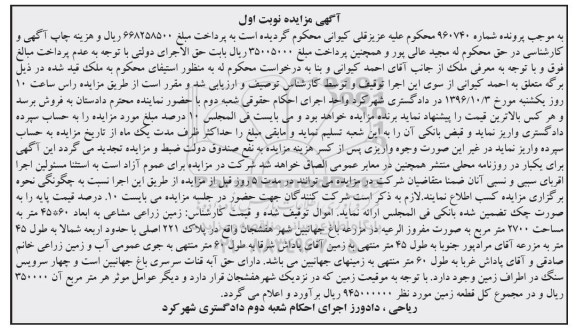 آگهی مزایده نوبت اول
به موجب پرونده شماره ۹۶۰۷۴۰ محکوم علیه عزیزقلی کیوانی محکوم گردیده است به پرداخت مبلغ ۶۶۸۲۵۸۵۰۰ ریال و هزینه چاپ آگهی و
کارشناسی در حق محکوم له مجید عالی پور و همچنین پرداخت مبلغ ۳۵۰۰۵۰۰۰ ریال بابت حق الاجرای دولتی با توجه به عدم پرداخت مبالغ
فوق و با توجه به معرفی ملک از جانب آقای احمد کیوانی و بنا به درخواست محکوم له به منظور استیفای محکوم به ملک قید شده در ذیل
برگه متعلق به احمد کیوانی از سوی این اجرا توقیف و توسط کارشناس توصیف و ارزیابی شد و مقرر است از طریق مزایده راس ساعت ۱۰
روز یکشنبه مورخ ۱۳۹۶/۱۰/۳ در دادگستری شهرکرد واحد اجرای احکام حقوقی شعبه دوم با حضور نماینده محترم دادستان به فروش برسد
و هر کس بالاترین قیمت را پیشنهاد نماید برنده مزایده خواهد بود و می بایست فی المجلس ۱۰ درصد مبلغ مورد مزایده را به حساب سپرده
دادگستری واریز نماید و فیش بانکی آن را به این شعبه تسلیم نماید و مابقی مبلغ را حداکثر ظرف مدت یک ماه از تاریخ مزایده به حساب
سپرده واریز نماید در غیر این صورت وجوه واریزی پس از کسر هزینه مزایده به نفع صندوق دولت ضبط و مزایده تجدید می گردد این آگهی
برای یکبار در روزنامه محلی منتشر همچنین در معابر عمومی الصاق خواهد شد شرکت در مزایده برای عموم آزاد است به استثنا مسئولین اجرا
اقربای سببی و نسبی آنان ضمنا متقاضیان شرکت در مزایده می توانند در مدت ۵ روز قبل از مزایده از طریق این اجرا نسبت به چگونگی نحوه
برگزاری مزایده کسب اطلاع نمایند.لازم به ذکر است شرکت کنندگان جهت حضور در جلسه مزایده می بایست ۱۰ درصد قیمت پایه را به
صورت چک تضمین شده بانکی فی المجلس ارائه نماید. اموال توقیف شده و قیمت کارشناس: زمین زراعی مشاعی به ابعاد ۶۰*۴۵ متر به
مساحت ۲۷۰۰ متر مربع به صورت مفروز الرعیه در مزرعه باغ جهانبین شهر هفشجان واقع در پلاک ۲۲۱ اصلی با حدود اربعه شمالا به طول ۴۵
متر به مزرعه آقای مرادپور جنوبا به طول ۴۵ متر منتهی به زمین آقای پاداش شرقا به طول ۶۰ متر منتهی به جوی عمومی آب و زمین زراعی خانم
صادقی و آقای پاداش غربا به طول ۶۰ متر منتهی به زمینهای جهانبین می باشد. دارای حق آبه قنات سرسری باغ جهانبین است و چهار سرویس
سنگ در اطراف زمین وجود دارد. با توجه به موقعیت زمین که در نزدیک شهرهفشجان قرار دارد و دیگر عوامل موثر هر متر مربع آن ۳۵۰۰۰۰
ریال و در مجموع کل قطعه زمین مورد نظر ۹۴۵۰۰۰۰۰۰ ریال برآورد و اعلام می گردد.
ریاحی ، دادورز اجرای احکام شعبه دوم دادگستری شهرکرد